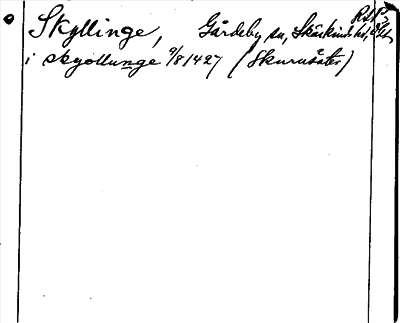 Skyllinge, Gårdeby sn, Skärkinds hd,
i skyollunge 9/8 1427 (Skurusäter)